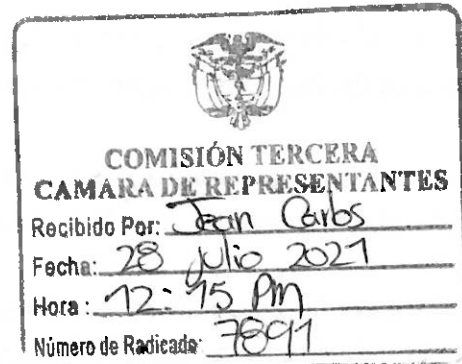 COMISIÓN TERCERA
CAMARA DE REPRESENTANTES
Recibido Por: Jean Carlos
Fecha: 28 Julio 2021
Hora : 12:15 Pm
Número de Radicado: 7891